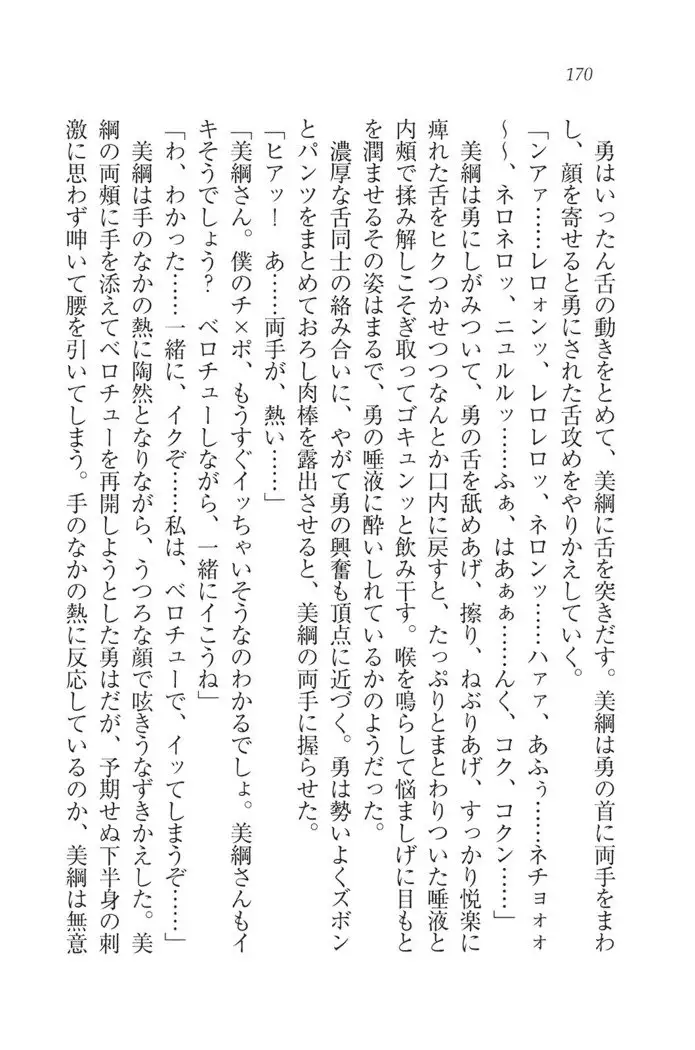 170
勇はいったん舌の動きをとめて、美綱に舌を突きだす。美綱は勇の首に両手をまわ
し、顔を寄せると勇にされた舌攻めをやりかえしていく。
「ンアァ……レロォンッ、レロレロッ、ネロンッ……ハァァ、あふぅ……ネチョォォ
～～、ネロネロッ、ニュルルッ……ふぁ、はあぁぁ……んく、コク、コクン……」
美綱は勇にしがみついて、勇の舌を舐めあげ、擦り、ねぶりあげ、すっかり悦楽に
痺れた舌をヒクつかせつつなんとか口内に戻すと、たっぷりとまとわりついた唾液と
内頬で揉み解しこそぎ取ってゴキュンッと飲み干す。喉を鳴らして悩ましげに目もと
を潤ませるその姿はまるで、勇の唾液に酔いしれているかのようだった。
濃厚な舌同士の絡み合いに、やがて勇の興奮も頂点に近づく。勇は勢いよくズボン
とパンツをまとめておろし肉棒を露出させると、美綱の両手に握らせた。
「ヒアッ！　あ……両手が、熱い……」
「美綱さん。僕のチ×ポ、もうすぐイッちゃいそうなのわかるでしょ。美綱さんもイ
キそうでしょう？　ベロチューしながら、一緒にイこうね」
「わ、わかった……一緒に、イクぞ……私は、ベロチューで、イッてしまうぞ……」
美綱は手のなかの熱に陶然となりながら、うつろな顔で呟きうなずきかえした。美
綱の両頬に手を添えてベロチューを再開しようとした勇はだが、予期せぬ下半身の刺
激に思わず呻いて腰を引いてしまう。手のなかの熱に反応しているのか、美綱は無意